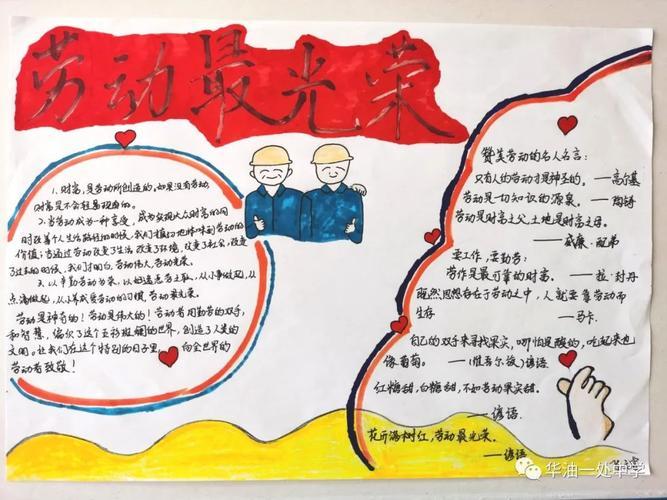 劳动最光荣
1.财富,是劳动所创造的。如果没有劳动,
财富是不会轻易现面的。
2.当劳动成为一种享受,成为实现大众财富的同
时改善个人生活路径的时候,我们真切地体味到劳动的
价值;当通过劳动改变了生活,改变了环境,改变了社会,改变
了过去的时候,我们才明白,劳动伟大,劳动光荣。
3.以辛勤劳动为荣,以好逸恶劳之耻,从小事做起,从
点滴做起,从小养成爱劳动的习惯,劳动最光荣。
劳动是神奇的!劳动是伟大的!劳动者用勤劳的双手,
和智慧,编织了这个五彩斑斓的世界,创造了人类的
文明。让我们在这个特别的日子里,向全世界的
劳动者致敬!
赞美劳动的名人名言:
只有人的劳动才是神圣的。——高尔基
劳动是一切知识的源泉。——陶铸
劳动是财富之父,土地是财富之母。
——威廉·配弟
要工作,要勤劳:
劳作是最可靠的财富。——拉·封丹
既然思想存在于劳动之中,人就要靠劳动而
生存 ——马卡.
自己的双手来寻找果实,哪怕是酸的,吃起来也
像葡萄。——(维吾尔族)谚语
红糖甜,白糖甜,不如劳动果实甜.
——谚语.
花开满树红,劳动最光荣。
——谚语
华油一处中学